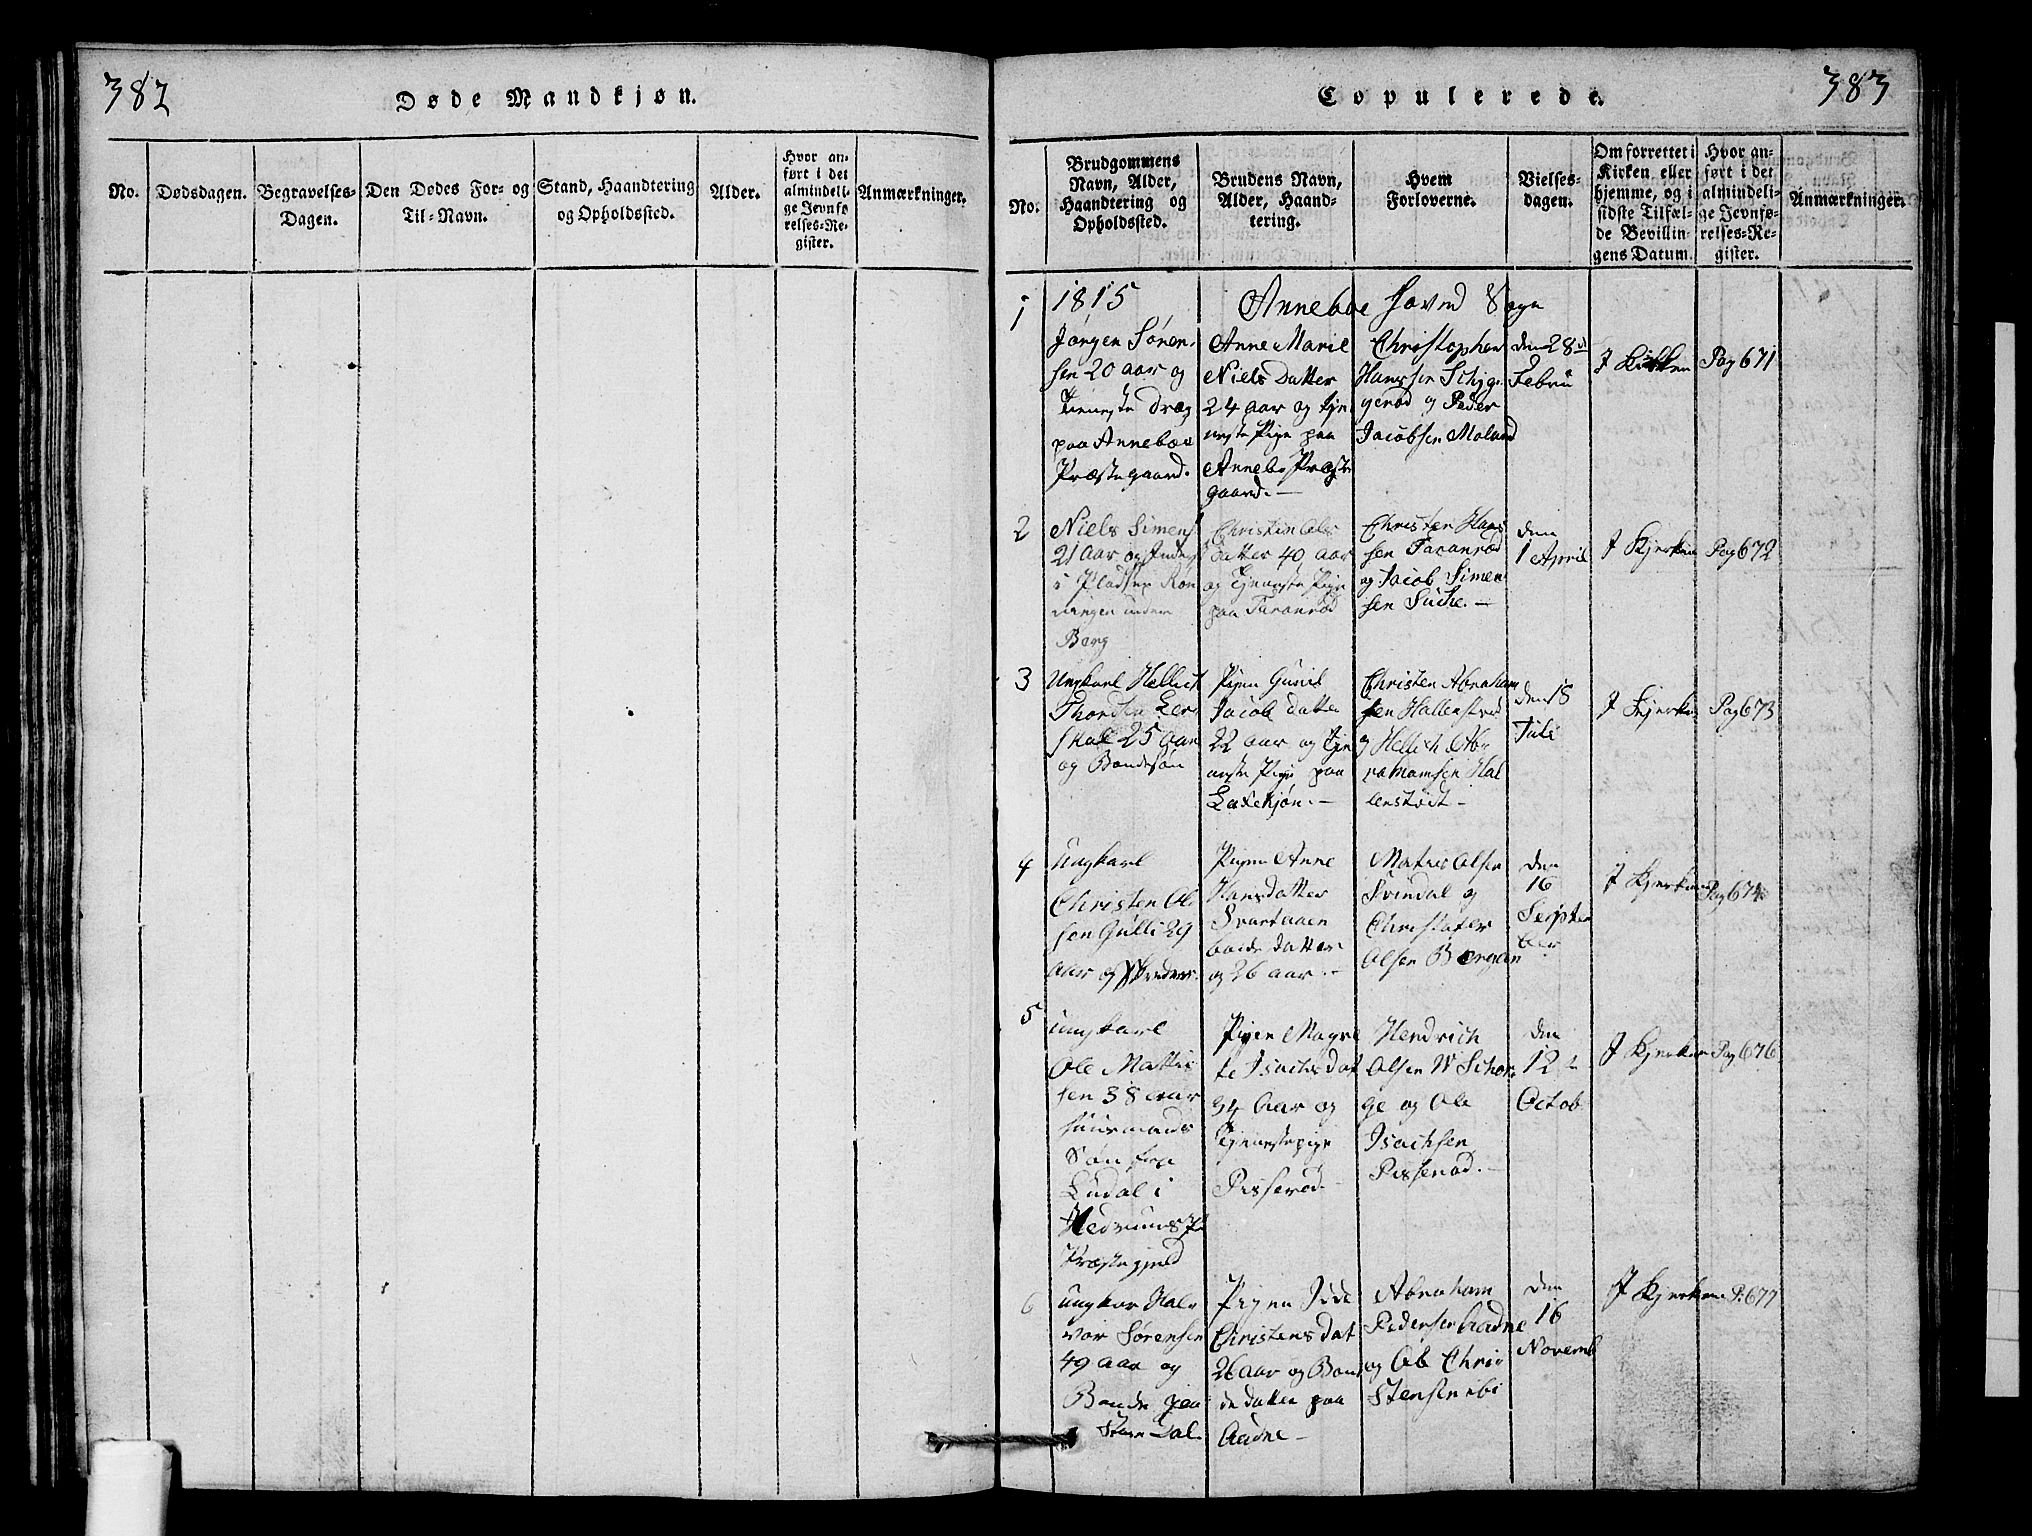 382
Døde Mandkjøn.
No.
Dødsdagen.
Begravelses-
Dagen.
Den Dødes For- og
Til-Navn.
Stand, Haandtering
og Opholdssted.
Alder.
Hvor an-
ført i det
almindeli-
ge Jevnfø-
relses-Re-
gister.
Anmærkninger.
383
Copulerede.
No.
Brudgommens
Navn, Alder,
Haandtering og
Opholdssted.
Brudens Navn,
Alder, Haand-
tering.
Hvem
Forloverne.
Vielses-
dagen.
Om forrettet i
Kirken eller
hjemme, og i
sidste Tilfæl-
de Bevillin-
gens Datum.
Hvor an-
ført i det
almindeli-
ge Jevnfø-
relses-Re-
gister.
Anmærkninger.
1815
Anneboe Hoved Sogn
1
Jørgen Søren-
sen 20 aar og
Tieneste Dræg
paa Anneboe
Præstegaard.
Anne Marie
Niels Datter
24 Aar og Tje
neste Pige paa
Annebo Præste
gaard.—
Christopher
Hanssen Schyg
gerød og Peder
Jacobsen Moland
den 28de
Febru
J Kirken
Pag 671
2
Niels Simens
21 Aar og
i Pladsen Røn
ningen under
Berg
Christin Ols
Datter 40 aar
og Tjeneste Pige
paa Taranrød
Christen Hans
sen Taranrød
og Jacob Simen
sen .—
den
1 April
J Kjerken
Pag 672
3
Ungkarl Hellich
Thordsen Ler
skal 25 aar
og Bondesøn
Pigen Gunil
Jacob Datter
22 aar og Tje
neste Pige paa
Laxekjøn.—
Christen Abraham
sen Hallenstvedt
og Hellich Ab
rahamsen Hal
lenstvdt—
den 18
Juli
J Kjerken
Pag 673
4
Ungkarl
Christen Ol
sen Gulli 29
Aar og Skreder.
Pigen Anne
Hansdatter
Svartaaen
bonde Datter
og 26 aar.—
Matis Olsen
Svindal og
Christofer
Olsen Bærgan
den
16
Septem
ber
J Kjerken
Pag 674
5
Ungkarl
Ole Mattis
sen 38 aar
huusmands
Søn fra
Ludal i
Hedrums
Præstegjeld
Pigen Magre
te Isachsdat
34 Aar og
Tjenestepige
Pisserød
Hendrich
Olsen W Schor
ge og Ole
Isachsen
Pisserød.—
den
12te
Octob
J Kjerken
Pag 676
6
Ungkar Hal
vor Sørensen
49 aar og
Bonde paa
Store Dal.
Pigen Idde
Christensdat
26 aar og Bon
dedatter paa
Aadne—
Abraham
Pedersen Aadne
og Ole Chris
stensen ibi
den
16
Novemb
J Kjerken
P. 677